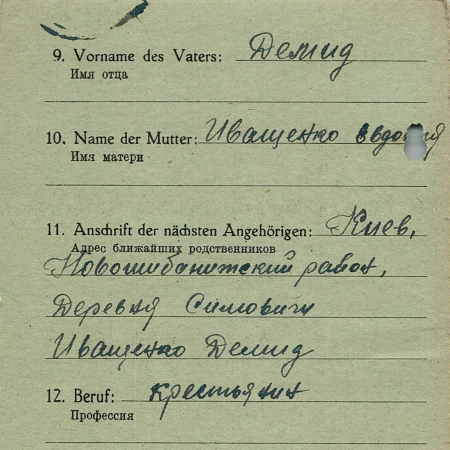 9. Vorname des Vaters: Демид
Имя отца
10. Name der Mutter: Иващенко Евдокия
Имя матери
11. Anschrift der nächsten Angehörigen: Киев,
Адрес ближайших родственников
район,
Деревня Симовичи
Иващенко Демид
12. Beruf: крестьянин
Профессия